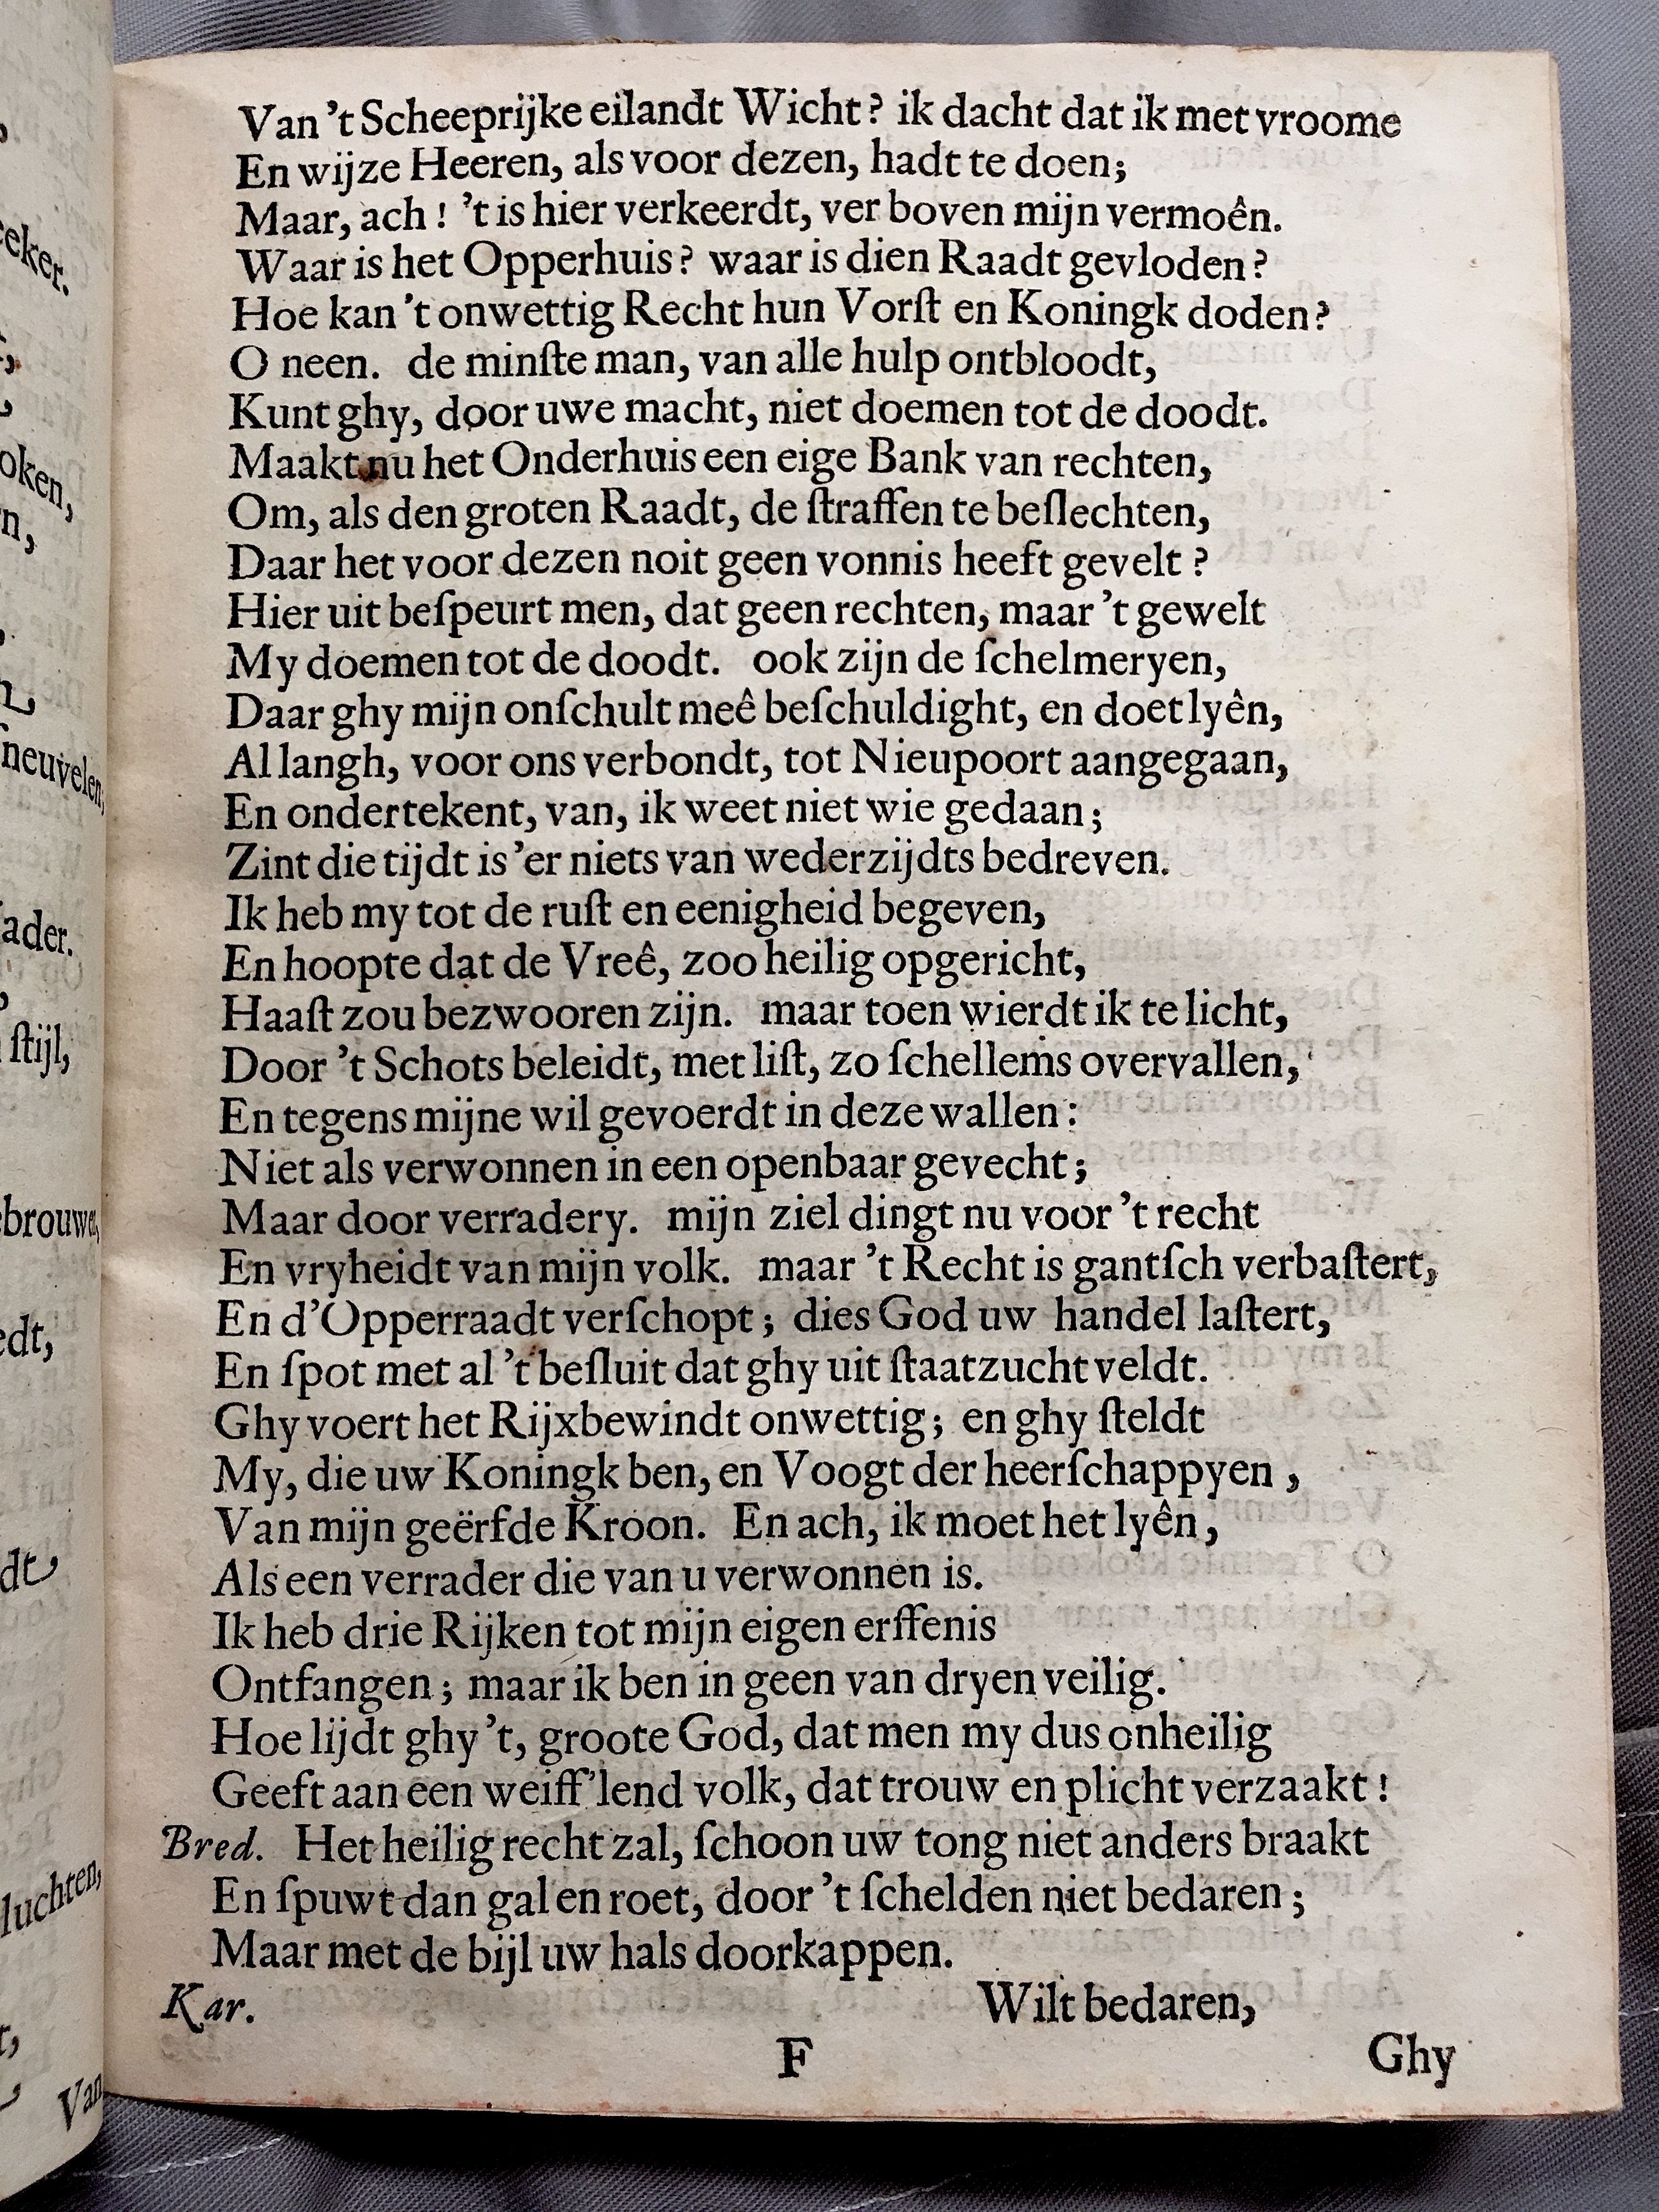 Van 't Scheeprijke eilandt Wicht? ik dacht dat ik met vroome
En wijze Heeren, als voor dezen, hadt te doen;
Maar, ach! 't is hier verkeerdt, ver boven mijn vermoên.
Waar is het Opperhuis? waar is dien Raadt gevloden?
Hoe kan 't onwettig Recht hun Vorſt en Koningk doden?
O neen. de minſte man, van alle hulp ontbloodt,
Kunt ghy, door uwe macht, niet doemen tot de doodt.
Maakt nu het Onderhuis een eige Bank van rechten,
Om, als den groten Raadt, de ſtraffen te beſlechten,
Daar het voor dezen noit geen vonnis heeft gevelt?
Hier uit beſpeurt men, dat geen rechten, maar 't gewelt
My doemen tot de doodt. ook zijn de ſchelmeryen,
Daar ghy mijn onſchult meê beſchuldight, en doet lyên,
Al langh, voor ons verbondt, tot Nieupoort aangegaan,
En ondertekent, van, ik weet niet wie gedaan;
Zint die tijdt is 'er niets van wederzijdts bedreven.
Ik heb my tot de ruſt en eenigheid begeven,
En hoopte dat de Vreê, zoo heilig opgericht,
Haaſt zou bezwooren zijn. maar toen wierdt ik te licht,
Door 't Schots beleidt, met liſt, zo ſchellems overvallen,
En tegens mijne wil gevoerdt in deze wallen:
Niet als verwonnen in een openbaar gevecht;
Maar door verradery. mijn ziel dingt nu voor 't recht
En vryheidt van mijn volk. maar 't Recht is gantſch verbaſtert,
En d'Opperraadt verſchopt; dies God uw handel laſtert,
En ſpot met al 't beſluit dat ghy uit ſtaatzucht veldt.
Ghy voert het Rijxbewindt onwettig; en ghy ſteldt
My, die uw Koningk ben, en Voogt der heerſchappyen,
Van mijn geërfde Kroon. En ach, ik moet het lyên,
Als een verrader die van u verwonnen is.
Ik heb drie Rijken tot mijn eigen erffenis
Ontfangen; maar ik ben in geen van dryen veilig.
Hoe lijdt ghy 't, groote God, dat men my dus onheilig
Geeft aan een weiff'lend volk, dat trouw en plicht verzaakt!
Bred. Het heilig recht zal, ſchoon uw tong niet anders braakt
En ſpuwt dan gal en roet, door 't ſchelden niet bedaren;
Maar met de bijl uw hals doorkappen.
Kar. Wilt bedaren,
F
Ghy